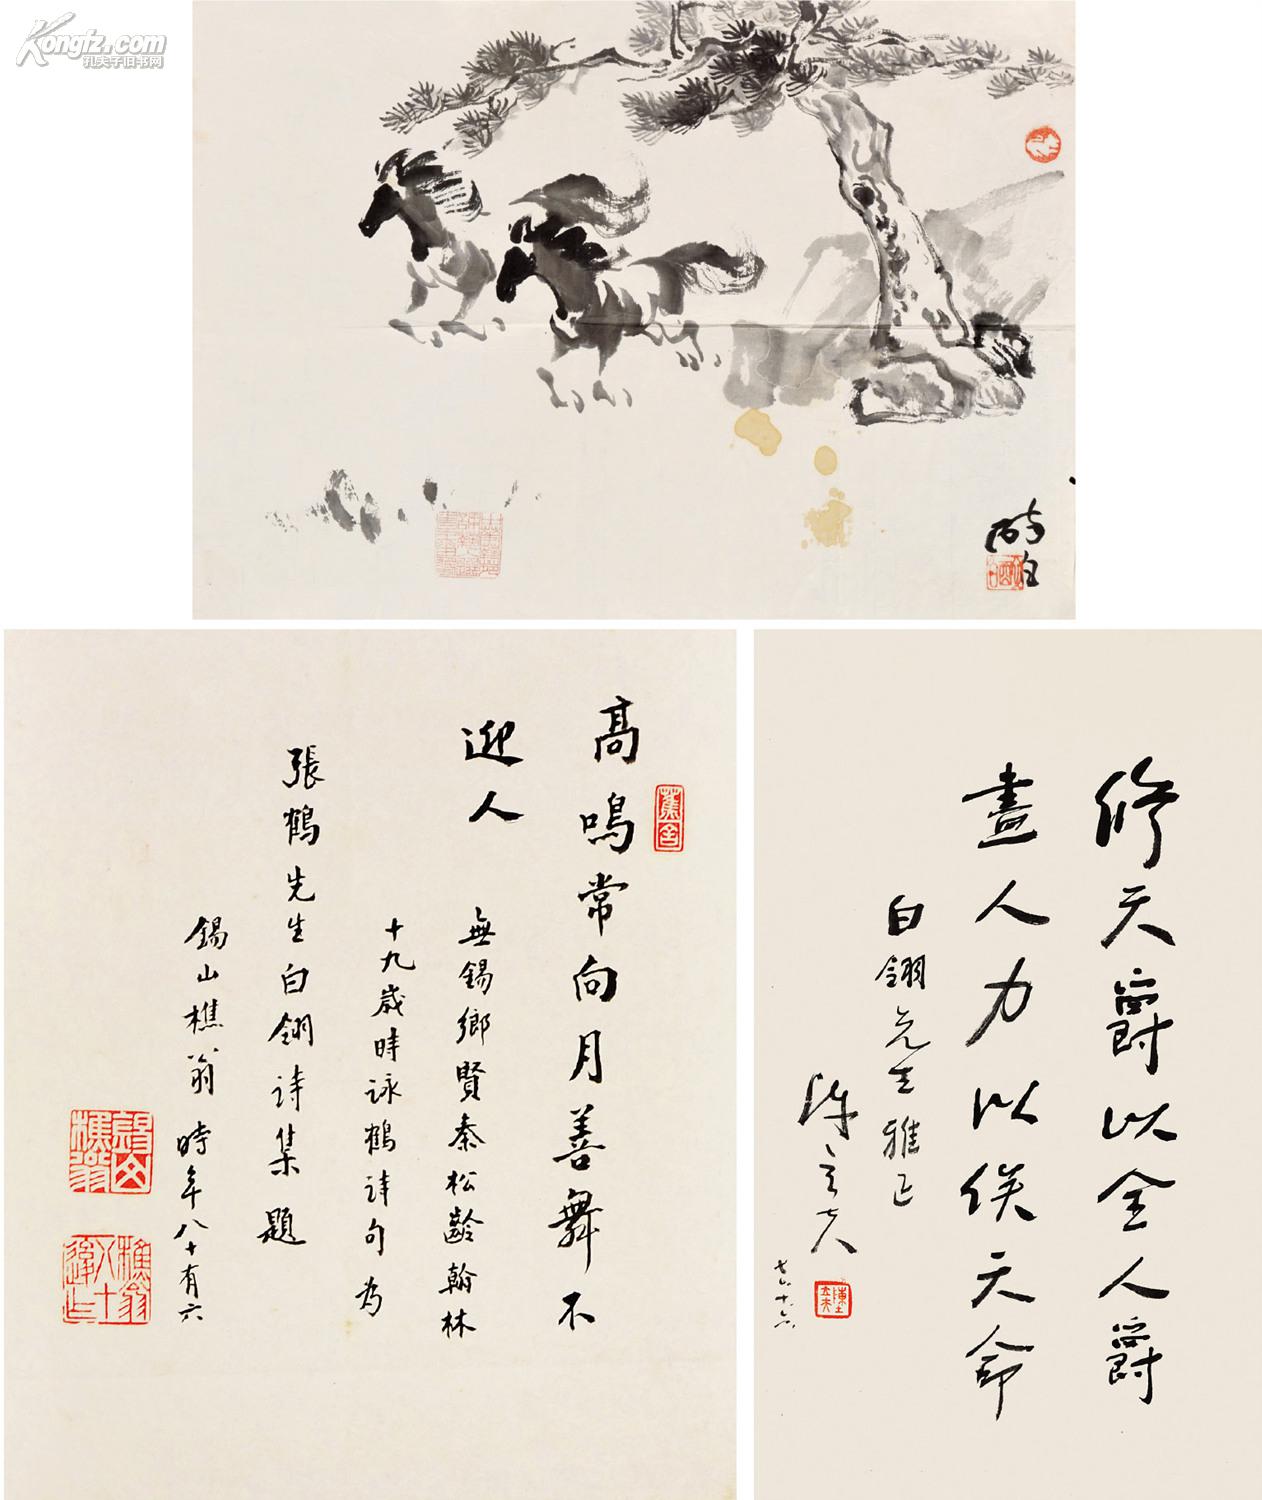 Kongfz.com
孔夫子旧书网
高鳴常向月善舞不
迎人
無錫鄉賢秦松齡翰林
十九歲時詠鶴詩句為
張鶴先生白翎詩集題
錫山樵翁時年八十有六
蕉舍
修天爵以全人爵
盡人力以俟天命
白翎先生雅正
陳立夫